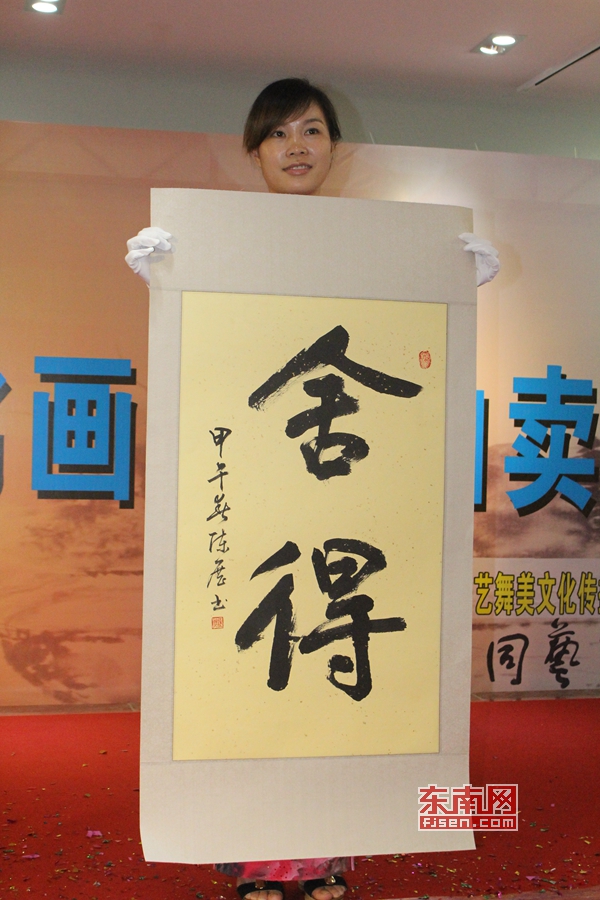 画
卖
舍得
甲午春陈 书
艺舞美文化传
同藝
东南网
fjsen.com